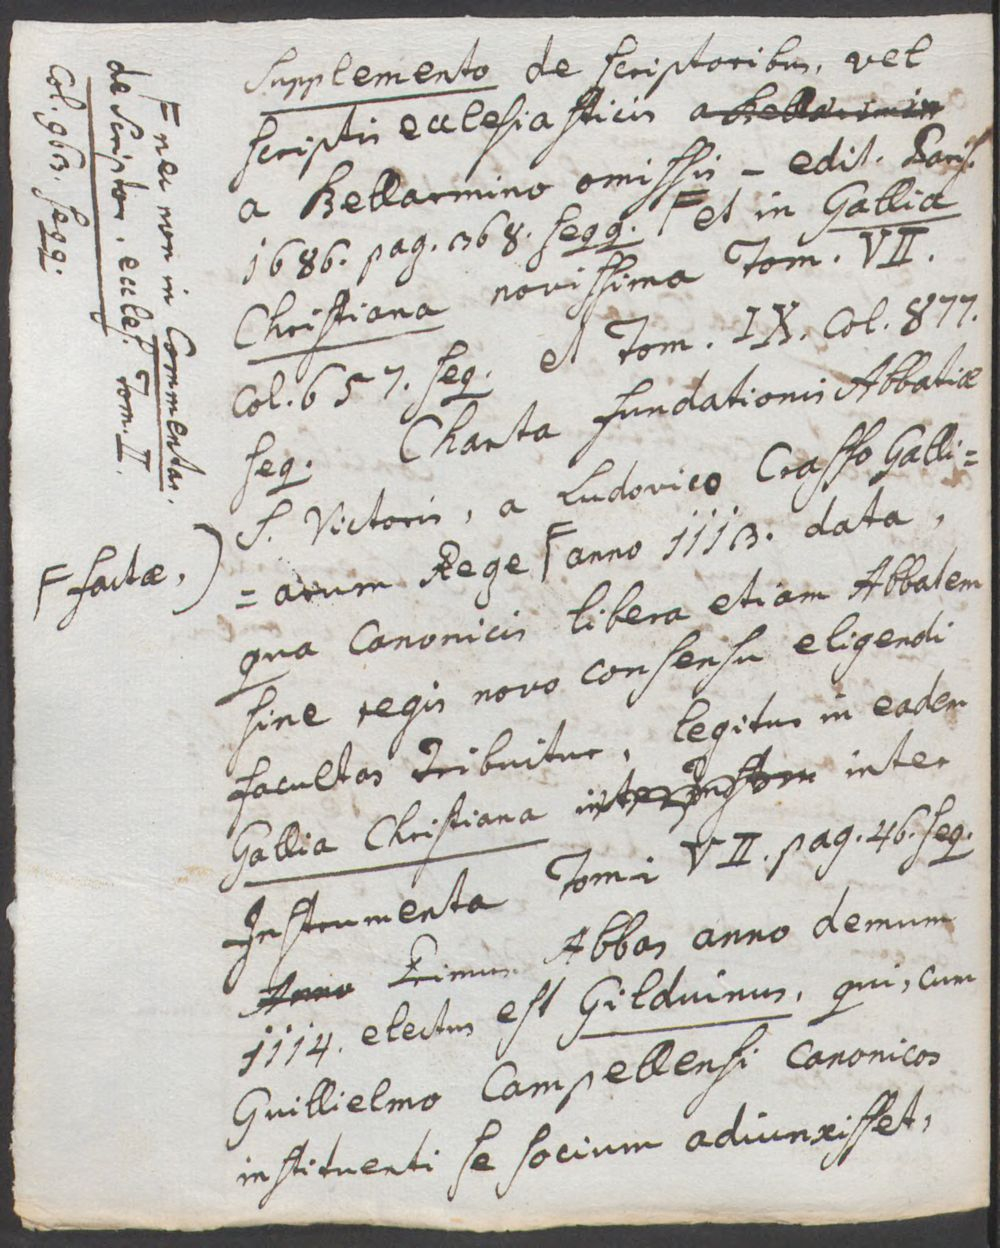 Supplemento de scriptoribus, vel
scriptis ecclesiasticis a Bellarmin
a Bellarmino omissis – edit. Paris.
1686. pag. 368. seqq. et in Gallia
Christiana novissima Tom. VII.
Col. 657. seq. et Tom. IX. Col. 877.
seq. Charta fundationis Abbatiæ
S. Victoris, a Ludovico Crasso Galli=
=arum Rege anno 1113. data,
qua Canonicis libera etiam Abbatem
sine regis novo consensu eligendi
facultas tribuitur, legitur in eadem
Gallia Christiana inter Instrum inter
Instrumenta Tomi VII. pag. 46. seq.
Anno Primus Abbas anno demum
1114. electus est Gilduinus, qui, cum
Guillielmo Campellensi Canonicos
instituenti se socium adiunxisset,
nec non in Commentar.
de Scriptor. eccles. Tom. II.
Col. 963. seqq.
factæ,)